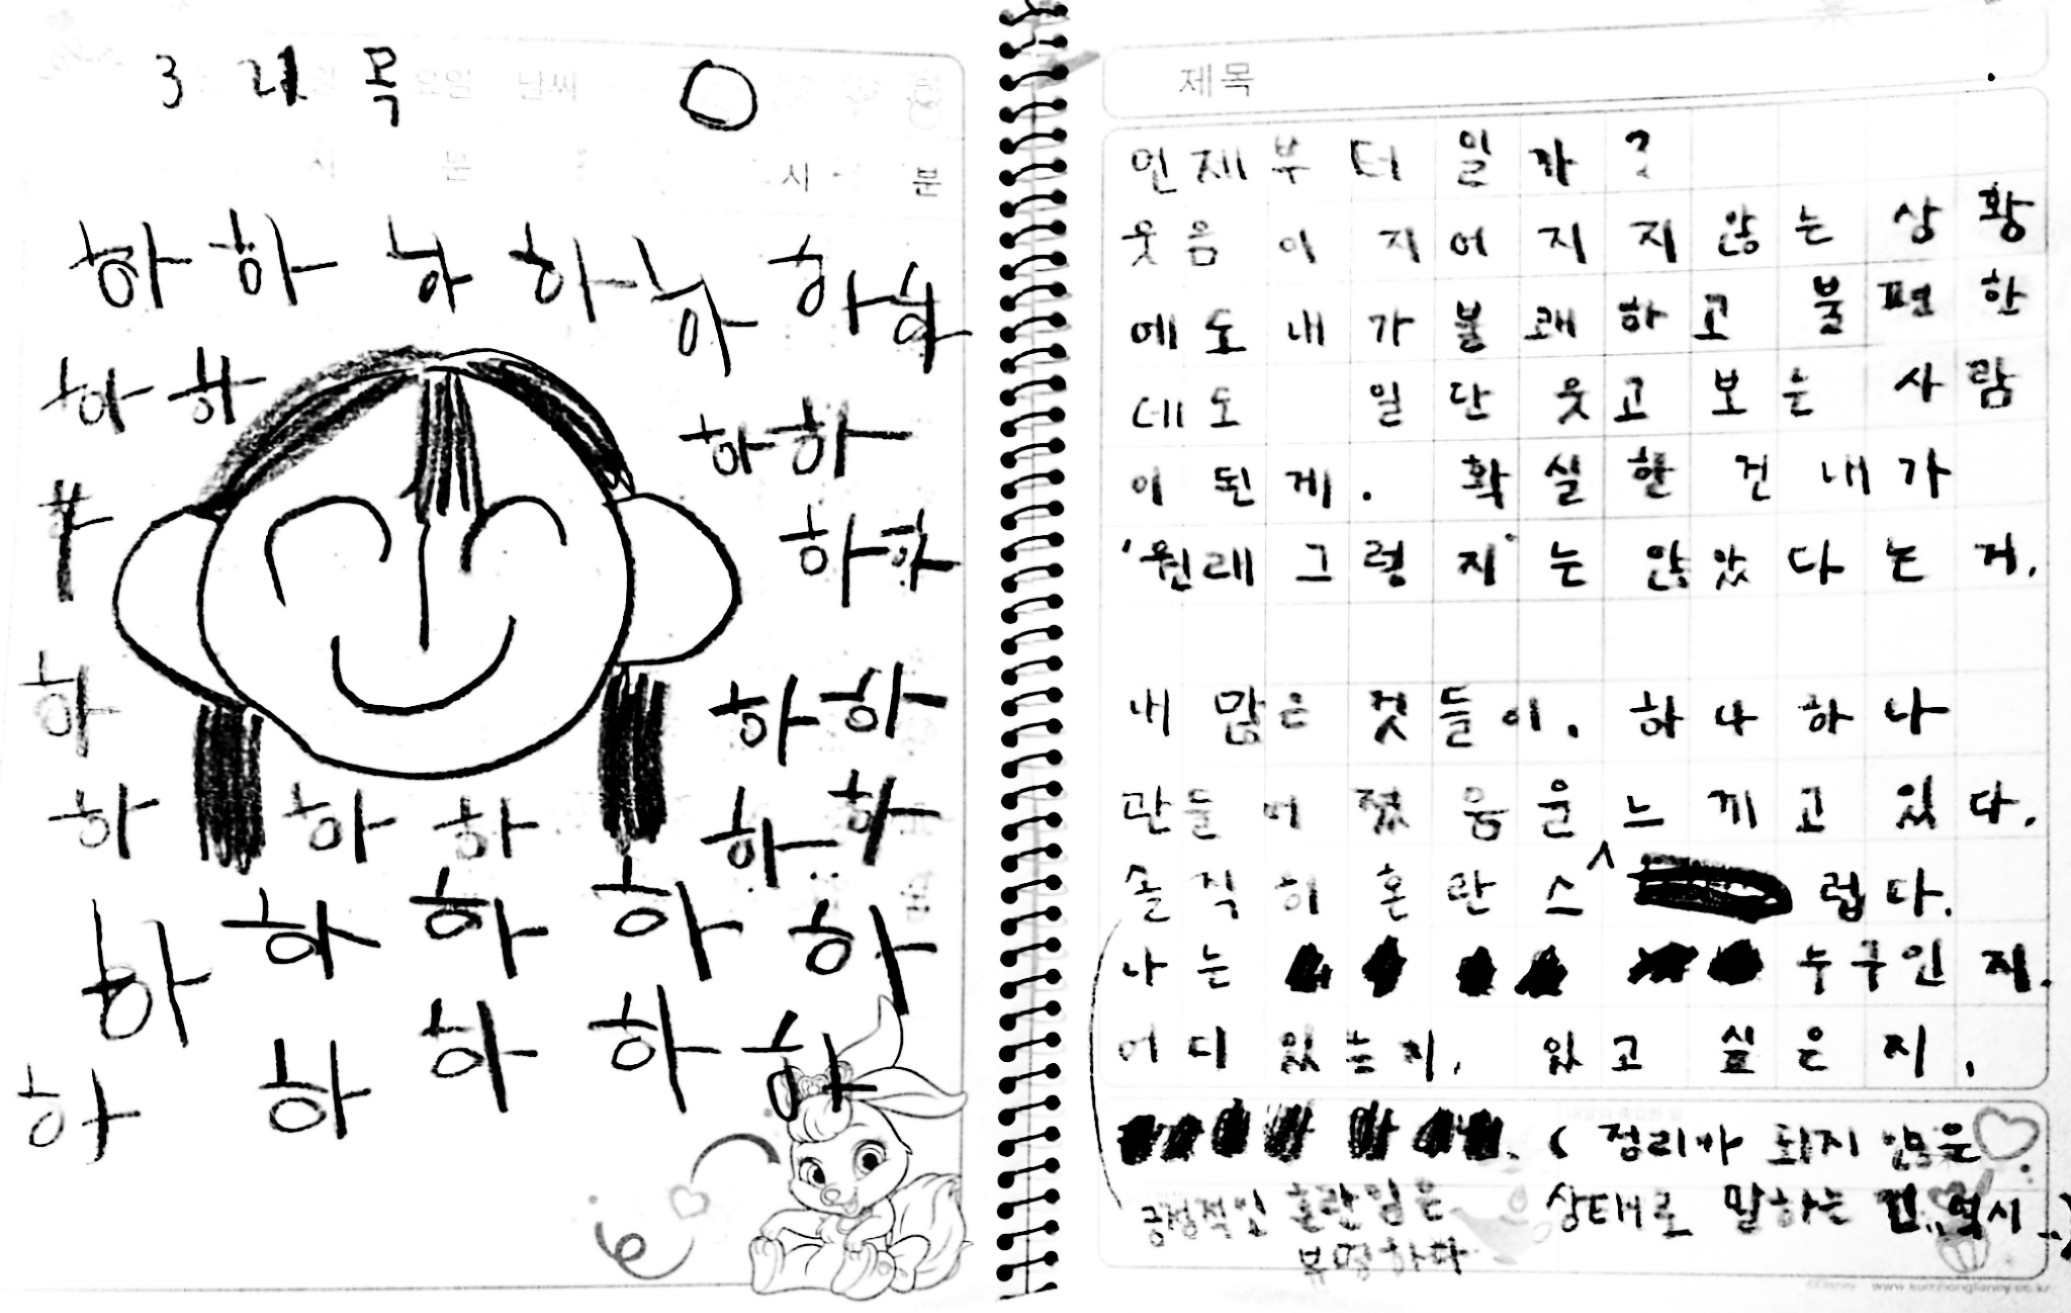 3 711 목
요일 날씨
시 분 시 분
하 하 하 하 하 하 하
하 하
하 하
하
하 하
하
하 하
하 하 하 하 하
하 하 하 하 하
하 하 하 하 하
제목
언제부터일까?
웃음이 지어지지 않는 상황
에도 내가 불쾌하고 불편한
데도 일단 웃고 보는 사람
이 된게. 확실한 건 내가
'원래 그렇지'는 않았다는 거.
내 많은 것들이. 하나하나
만들어졌음을 느끼고 있다.
솔직히 혼란스럽다.
나는 누구인지.
어디 있는지, 있고 싶은지,
(정리가 되지 않은
긍정적인 혼란임은 상태로 말하는 건.. 역시..)
분명하다
©Disney www.